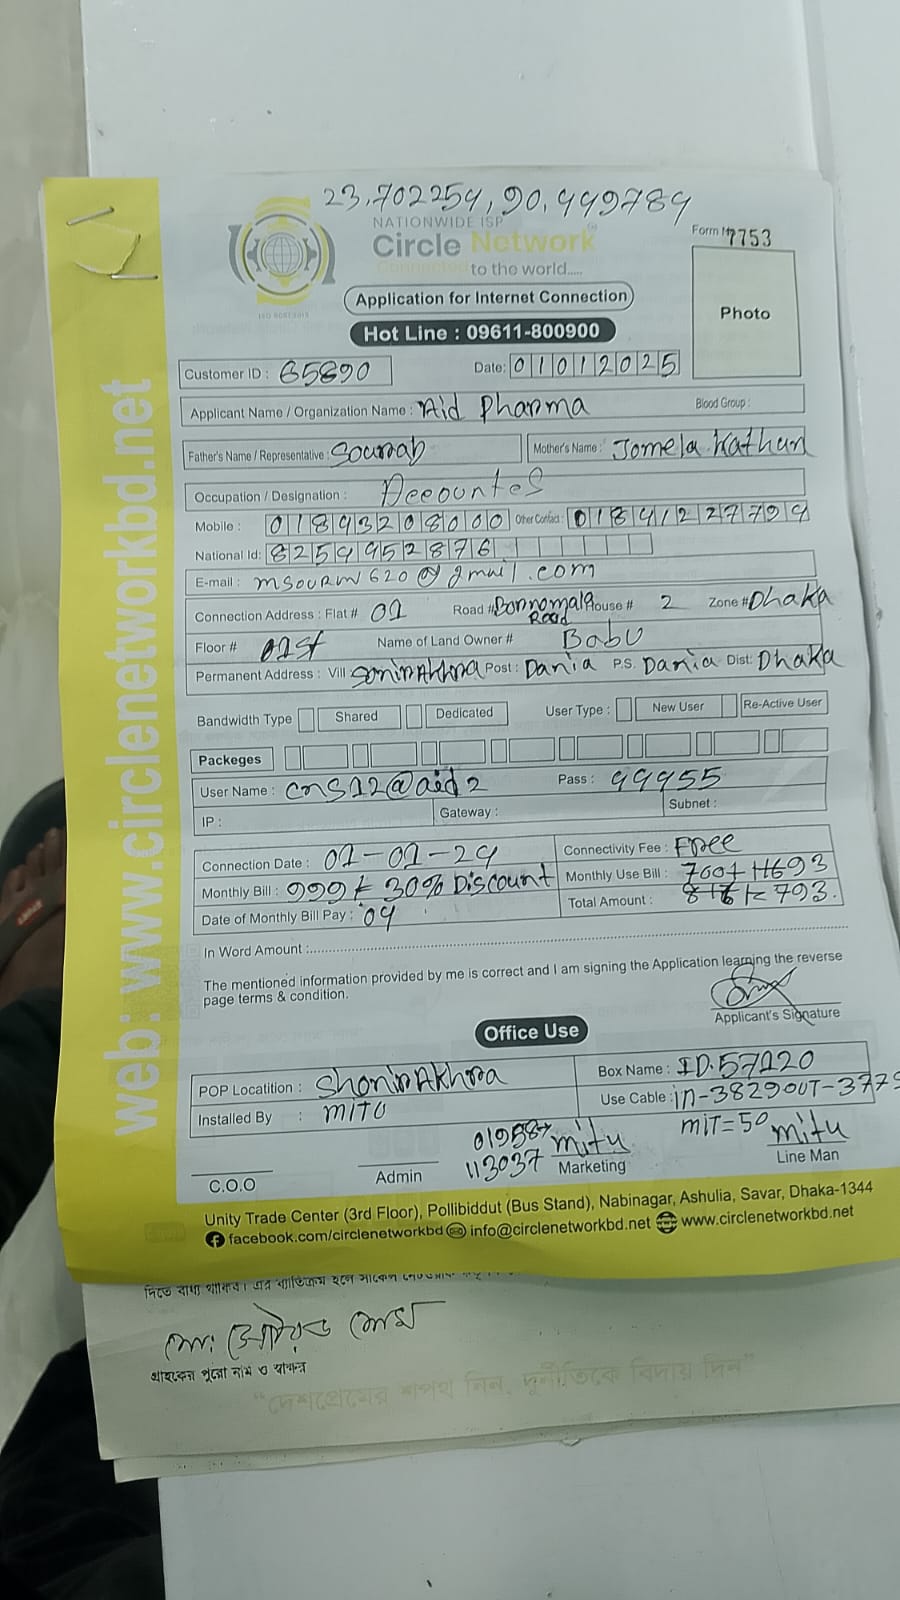 23.702254, 90.449789
NATIONWIDE ISP
Circle Network
Connected to the world.....
ISO 9001:2015
Form No 7753
Photo
Application for Internet Connection
Hot Line : 09611-800900
Customer ID : 65890 Date: 01012025
Applicant Name / Organization Name : Aid Pharma Blood Group :
Father's Name / Representative : Sourab Mother's Name : Jomela Kathun
Occupation / Designation :
Mobile : 01893208000 Other Contact : 01841227794
National Id: 8254952876
E-mail :
Connection Address : Flat # 01 Road # Bornomala Road House # 2 Zone # Dhaka
Floor # 01st Name of Land Owner # Babu
Permanent Address : Vill SoninAkhra Post : Dania P.S. Dania Dist: Dhaka
Bandwidth Type Shared Dedicated User Type : New User Re-Active User
Packeges
User Name : cns12@aid2 Pass : 44455
IP : Gateway : Subnet :
Connection Date : 01-01-24 Connectivity Fee : Free
Monthly Bill : 999 30% Discount Monthly Use Bill :
Date of Monthly Bill Pay : 04 Total Amount : 793.
In Word Amount :
The mentioned information provided by me is correct and I am signing the Application learning the reverse
page terms & condition.
Applicant's Signature
Office Use
POP Locatition : ShoninAkhra Box Name : ID.57120
Installed By : mitu Use Cable : in-3829 OUT-3779
mit=50
01958→
113037
mitu mitu
C.O.O Admin Marketing Line Man
Unity Trade Center (3rd Floor), Pollibiddut (Bus Stand), Nabinagar, Ashulia, Savar, Dhaka-1344
facebook.com/circlenetworkbd info@circlenetworkbd.net www.circlenetworkbd.net
web: www.circlenetworkbd.net
গ্রাহকের পুরো নাম ও স্বাক্ষর
“দেশপ্রেমের শপথ নিন, দুর্নীতিকে বিদায় দিন”